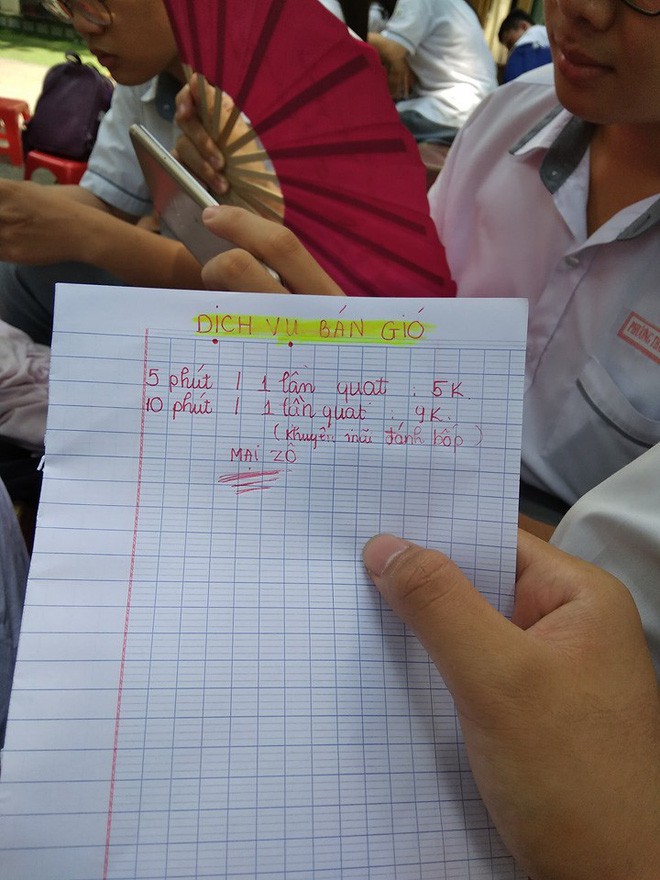 DỊCH VỤ BÁN GIÓ
5 phút / 1 lần quạt : 5K.
10 phút / 1 lần quạt : 9K.
(khuyến mãi đánh bốp)
MẠI ZÔ